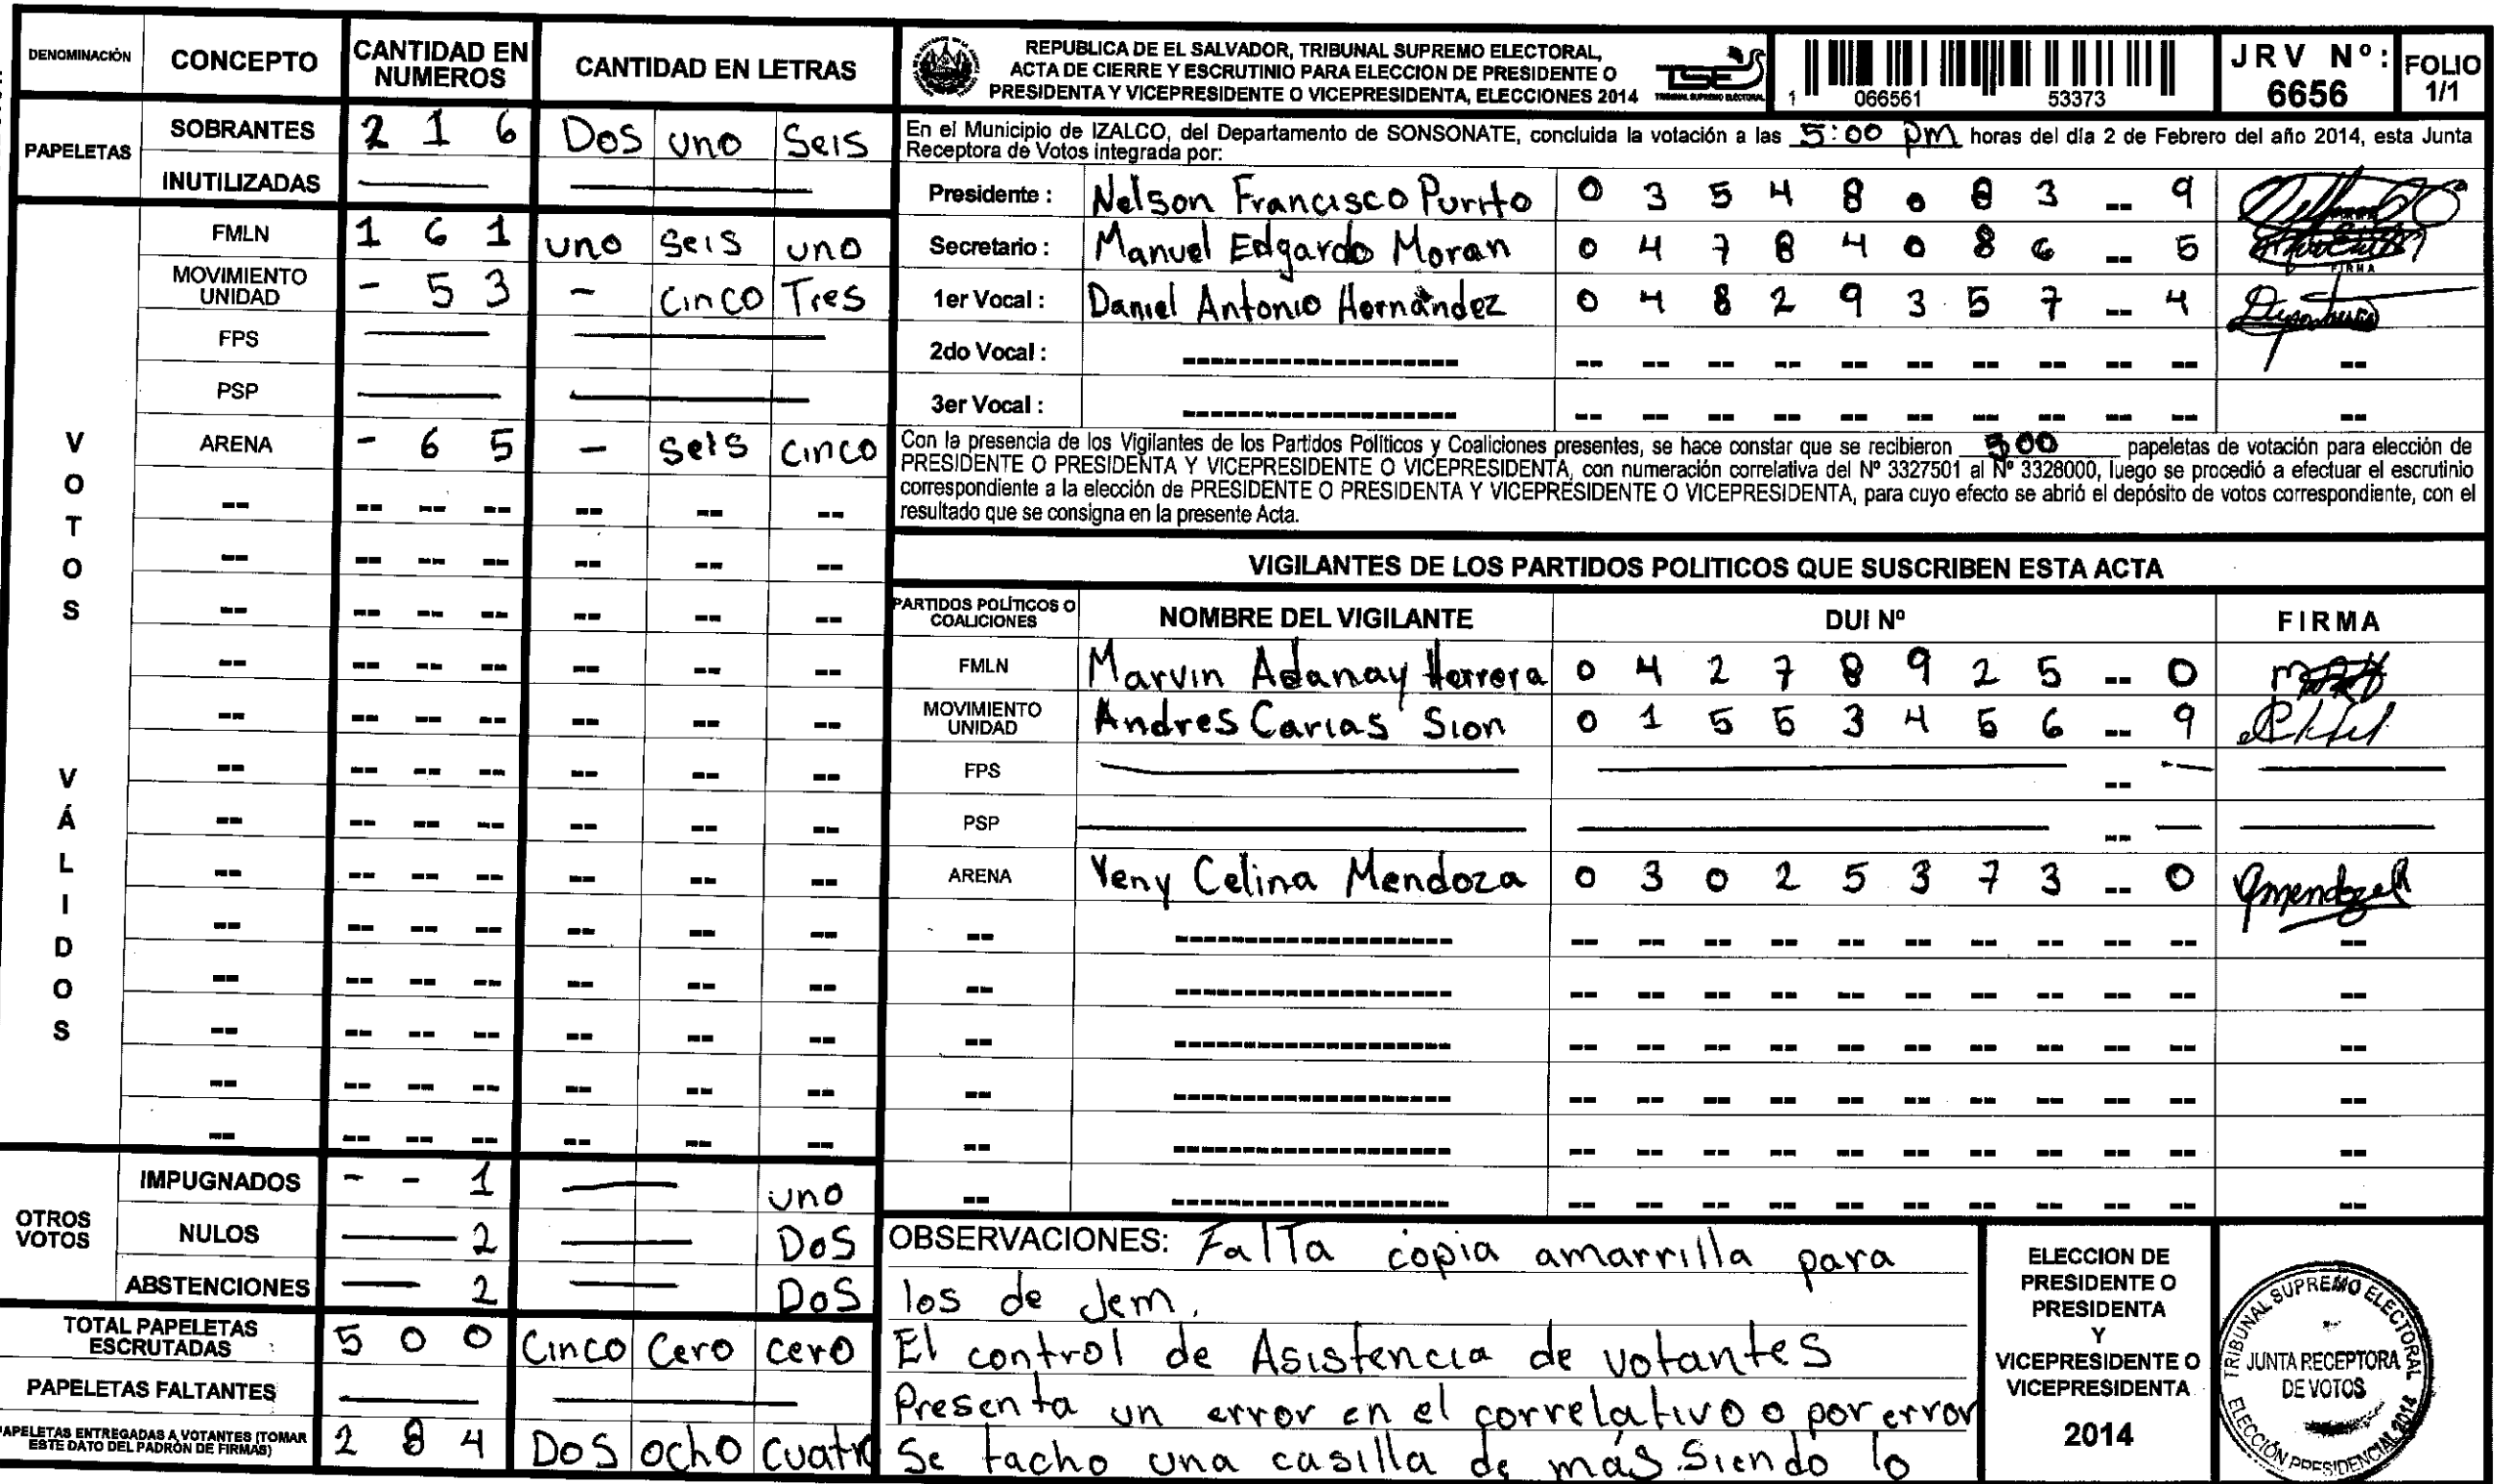 DENOMINACIÓN CONCEPTO CANTIDAD EN NUMEROS CANTIDAD EN LETRAS
PAPELETAS
SOBRANTES 2 1 6 Dos uno Seis
INUTILIZADAS
VOTOS VÁLIDOS
FMLN 1 6 1 uno seis uno
MOVIMIENTO UNIDAD - 5 3 - cinco Tres
FPS
PSP
ARENA - 6 5 - seis cinco
OTROS VOTOS
IMPUGNADOS - - 1 uno
NULOS 2 Dos
ABSTENCIONES 2 Dos
TOTAL PAPELETAS ESCRUTADAS 5 0 0 Cinco Cero cero
PAPELETAS FALTANTES
PAPELETAS ENTREGADAS A VOTANTES (TOMAR ESTE DATO DEL PADRÓN DE FIRMAS) 2 8 4 Dos ocho cuatro
REPUBLICA DE EL SALVADOR, TRIBUNAL SUPREMO ELECTORAL,
ACTA DE CIERRE Y ESCRUTINIO PARA ELECCION DE PRESIDENTE O
PRESIDENTA Y VICEPRESIDENTE O VICEPRESIDENTA, ELECCIONES 2014
TSE
TRIBUNAL SUPREMO ELECTORAL
1 066561 53373
JRV Nº: 6656
FOLIO 1/1
En el Municipio de IZALCO, del Departamento de SONSONATE, concluida la votación a las 5:00 pm horas del día 2 de Febrero del año 2014, esta Junta
Receptora de Votos integrada por:
Presidente : Nelson Francisco Purito 0 3 5 4 8 0 8 3 -- 9
Secretario : Manuel Edgardo Moran 0 4 7 8 4 0 8 6 -- 5
FIRMA
1er Vocal : Daniel Antonio Hernández 0 4 8 2 9 3 5 7 -- 4
2do Vocal :
3er Vocal :
Con la presencia de los Vigilantes de los Partidos Políticos y Coaliciones presentes, se hace constar que se recibieron 500 papeletas de votación para elección de
PRESIDENTE O PRESIDENTA Y VICEPRESIDENTE O VICEPRESIDENTA, con numeración correlativa del Nº 3327501 al Nº 3328000, luego se procedió a efectuar el escrutinio
correspondiente a la elección de PRESIDENTE O PRESIDENTA Y VICEPRESIDENTE O VICEPRESIDENTA, para cuyo efecto se abrió el depósito de votos correspondiente, con el
resultado que se consigna en la presente Acta.
VIGILANTES DE LOS PARTIDOS POLITICOS QUE SUSCRIBEN ESTA ACTA
PARTIDOS POLÍTICOS O COALICIONES NOMBRE DEL VIGILANTE DUI Nº FIRMA
FMLN Marvin Adanay Herrera 0 4 2 7 8 9 2 5 -- 0
MOVIMIENTO UNIDAD Andres Carias Sion 0 1 5 5 3 4 5 6 -- 9
FPS
PSP
ARENA Yeny Celina Mendoza 0 3 0 2 5 3 7 3 -- 0
OBSERVACIONES: Falta copia amarrilla para
los de Jem.
El control de Asistencia de votantes
Presenta un error en el correlativo o por error
Se tacho una casilla de más siendo lo
ELECCION DE
PRESIDENTE O
PRESIDENTA
Y
VICEPRESIDENTE O
VICEPRESIDENTA
2014
TRIBUNAL SUPREMO ELECTORAL
JUNTA RECEPTORA
DE VOTOS
ELECCIÓN PRESIDENCIAL 2014